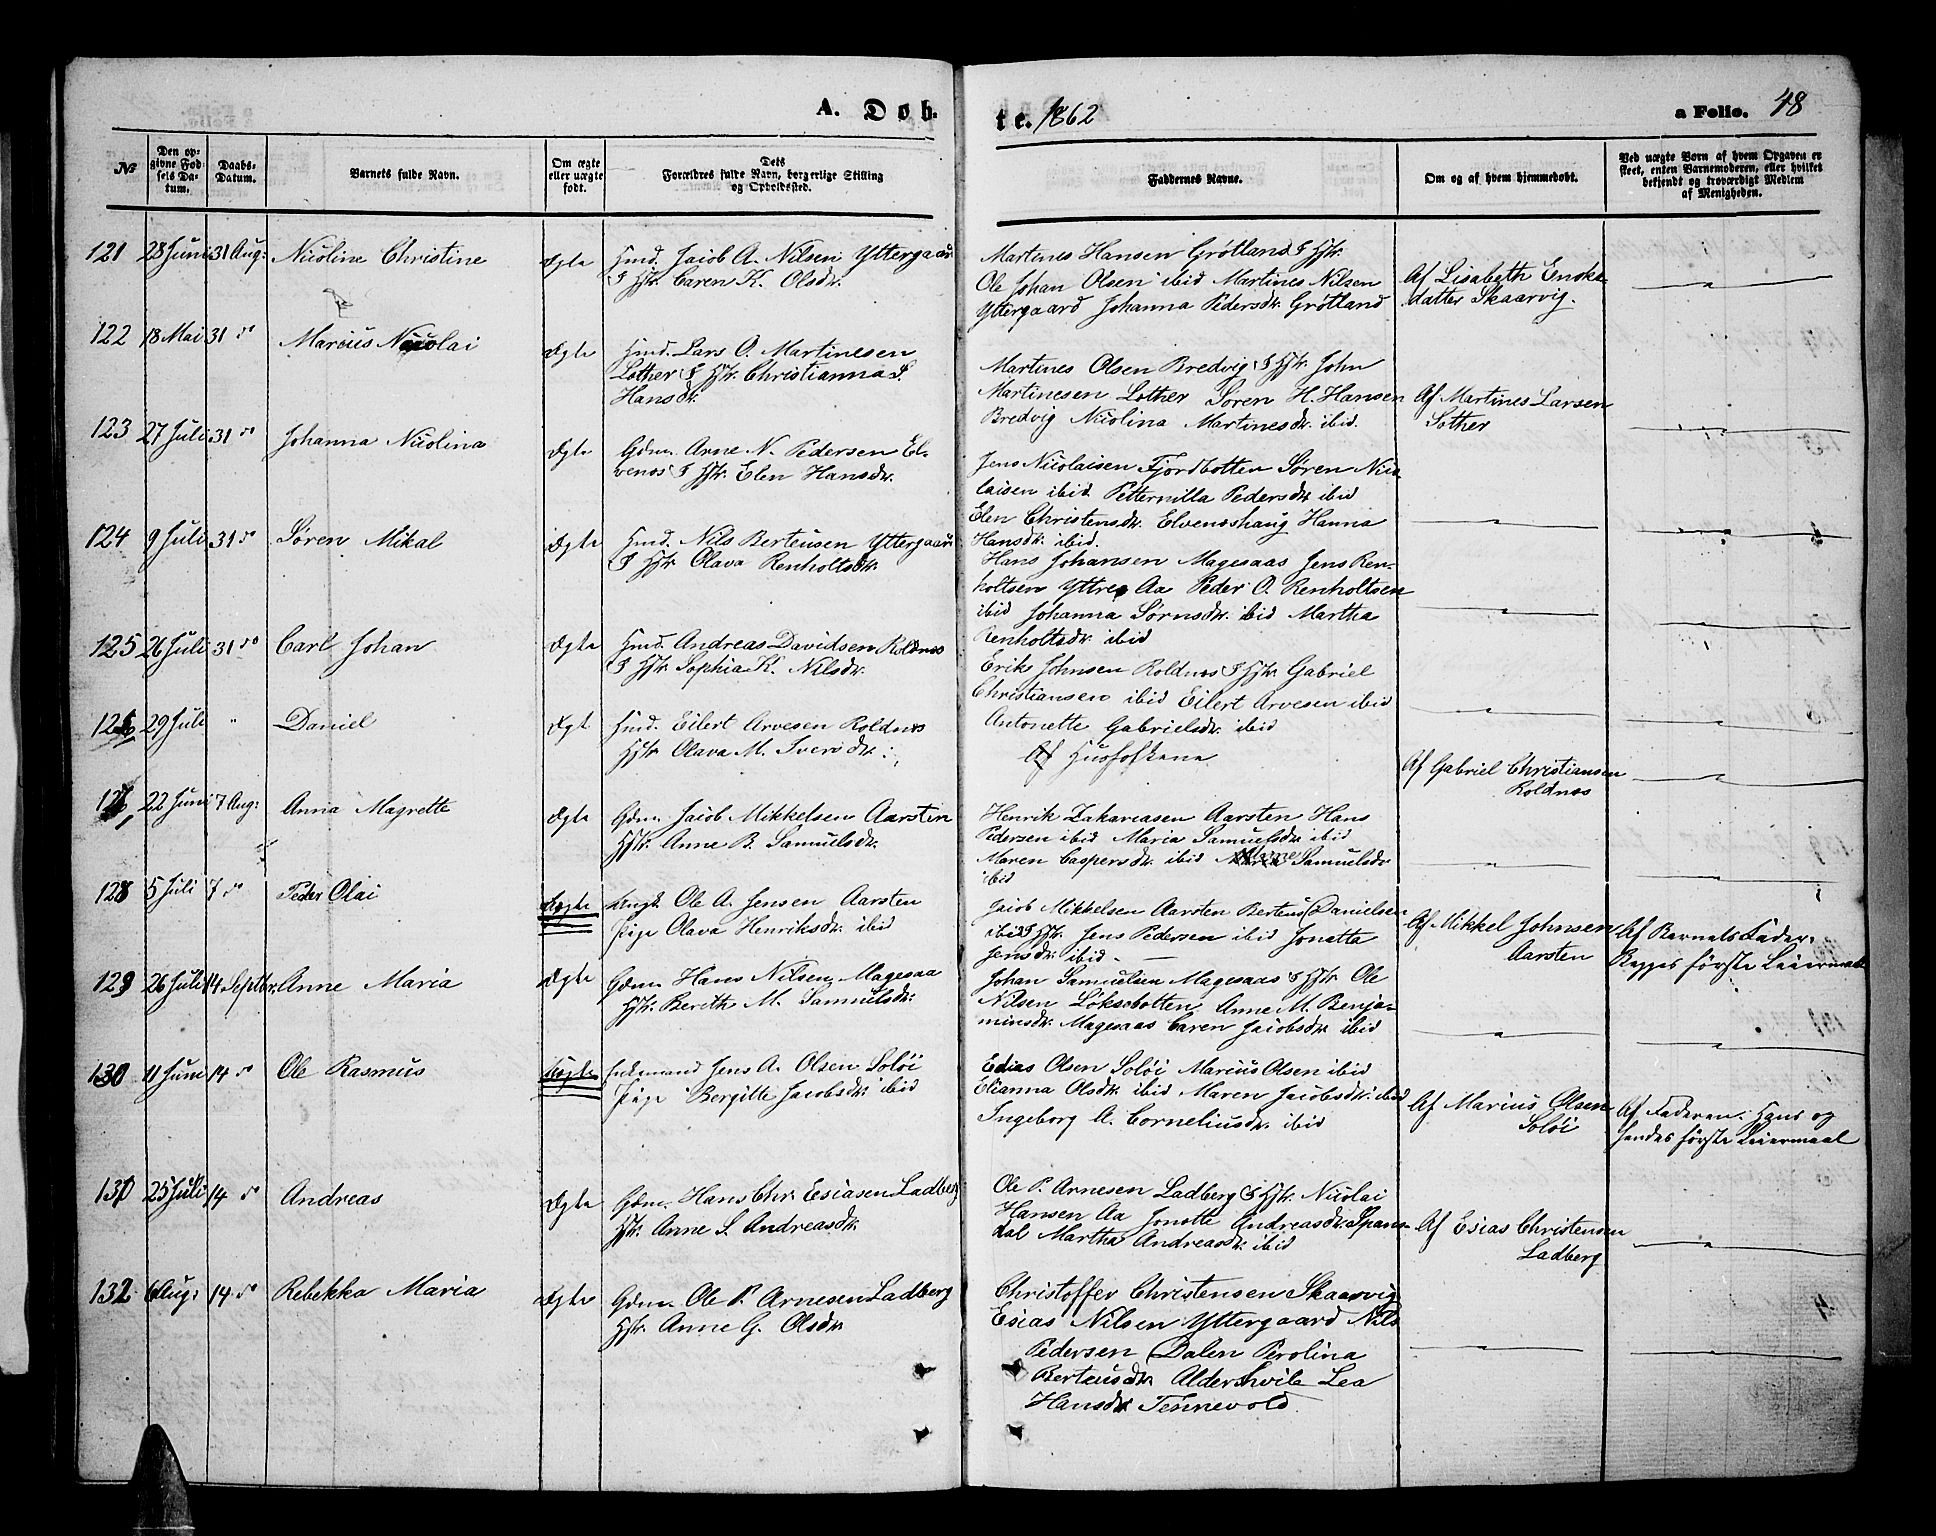 A. Døb-
te. 1862
a Folio. 48
No
Den op-
givne Fød-
sels Da-
tum.
Daabs-
Datum.
Barnets fulde Navn.
Om ægte
eller uægte
født.
Dets
Forældres fulde Navn, borgerlige Stilling
og Opholdssted.
Faddernes Navne.
Om og af hvem hjemmedøbt.
Ved uægte Børn af hvem Opgaven er
skeet, enten Barnemoderen, eller hvilket
bekjendt og troværdigt Medlem
af Menigheden.
121 28 Juni 31 Aug: Nicoline Christine Ægte Hmd. Jacob A. Nilsen Yttergaar
& Hstr. Caren K. Olsdr.
Martines Hansen Grøtland & Hstr.
Ole Johan Olsen ibid Martines Nilsen
Yttergaard Johanna Pedersdr. Grøtland
Af Lisabeth Enoks-
datter Skaarvig.
122 18 Mai 31 do Marcus Nicolai Ægte Hmd. Lars O. Martinesen
Lother & Hstr. Christianna S.
Hansdr.
Martines Olsen Bredvig & Hstr. John
Martinesen Lother Søren H. Hansen
Bredvig Nicolina Martinesdr. ibid.
Af Martines Larsen
Lother
123 27 Juli 31 do Johanna Nicolina Ægte Gdm. Arne N. Pedersen El-
venes & Hstr. Elen Hansdr.
Jens Nicolaisen Fjordbotten Søren Nico
laisen ibid Petternilla Pedersdr ibid
Elen Christensdr. Elveneshaug Hanna
Hansdr. ibid.
124 9 Juli 31 do Søren Mikal Ægte Hmd. Nils Berteusen Yttergaar
& Hstr Olava Renholtsdr.
Hans Johansen Magesaas Jens Ren-
holtsen Yttre Aa Peder O. Renholtsen
ibid Johanna Sørnsdr. ibid Martha
Renholtsdr. ibid
125 26 Juli 31 do Carl Johan Ægte Hmd. Andreas Davidsen Roldnes
& Hstr Sophia K. Nilsdr.
Erik Johnsen Roldnes & Hstr. Gabriel
Christiansen ibid Eilert Arvesen ibid
Antonette Gabrielsdr. ibid
126 29 Juli " Daniel Ægt Hmd. Eilert Arvesen Roldnes
Hstr Olava M. Iversdr.
Af Husfolkene
Af Gabriel Christiansen
Roldnes
127 22 Juni 7 Aug: Anna Magrette Ægte Gdm. Jacob Mikkelsen Aarsten
Hstr. Anne B. Samuelsdr.
Henrik Zakariasen Aarsten Hans
Pedersen ibid Maria Samuelsdr ibid
Maren Caspersdr. ibid Marine Samuelsdr
ibid
128 5 Juli 7 do Peder Olai Uægte Ungk. Ole A. Jensen Aarsten
Pige Olava Henriksdr. ibid
Jacob Mikkelsen Aarsten Berteus Danielsen
ibid & Hstr. Jens Pedersen ibid Jonetta
Jensdr. ibid.
Af Mikkel Johnsen
Aarsten
Af Barnets Fader.
Begges første Leiermaal
129 26 Juli 14 Septbr. Anne Maria Ægte Gdm. Hans Nilsen Magesaa
Hstr. Berith M. Samulsdr:
Johan Samuelsen Magesaas & Hstr Ole
Nilsen Løksebotten Anne M. Benja-
minsdr. Magesaas Caren Jacobsdr. ibid
130 11 Juni 14 do Ole Rasmus Uægte Enkemand Jens A. Olsen Soløi
Pige Bergitte Jacobsdr. ibid
Edias Olsen Soløi Marius Olsen ibid
Elianna Olsdr. ibid Maren Jacobsdr. ibid
Ingeborg A. Corneliusdr. ibid
Af Marius Olsen
Soløi
Af Faderen. Hans og
hendes første Leiermaal
131 25 Juli 14 do Andreas Ægte Gdm. Hans Chr. Esiasen Ladberg
Hstr. Anne S. Andreasdr.
Ole P. Arnesen Ladberg & Hstr. Nicolai
Hansen Aa Jonette Andreasdr. Spans-
dal Martha Andreasdr. ibid
Af Esias Christensen
Ladberg
132 6 Aug: 14 do Rebekka Maria Ægte Gdm. Ole P. Arnesen Ladberg
Hstr. Anne G. Olsdr.
Christoffer Christensen Skaarvig
Esias Nilsen Yttergaard Nils
Pedersen Dalen Perolina
Berteusdr. Aldershvile Lea
Hansdr Tennevold.